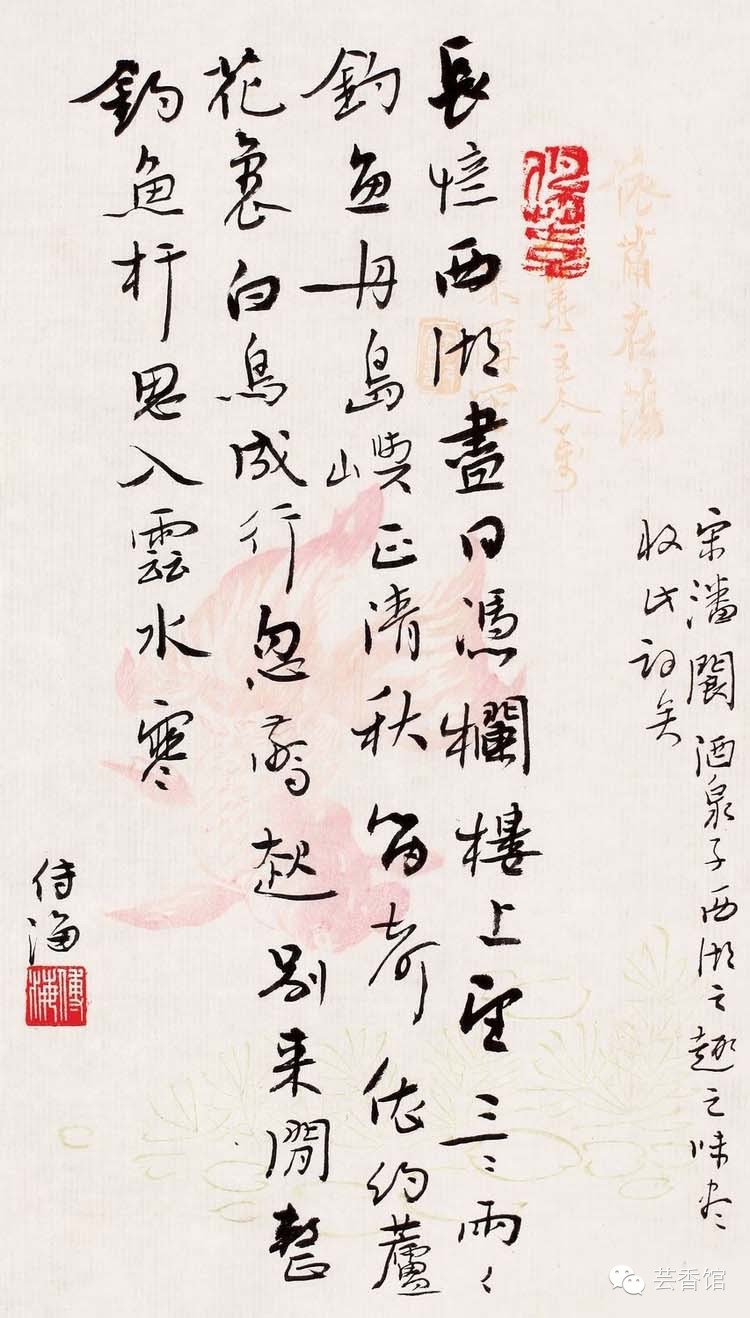 宋潘閬酒泉子西湖之趣之味尽
收此詞矣
依蒲在藻
長憶西湖盡日憑欄樓上望三〻兩〻
釣魚舟島嶼正清秋笛声依约蘆
花裏白鳥成行忽驚起别来閒整
釣魚杆思入雲水寒
芸香馆